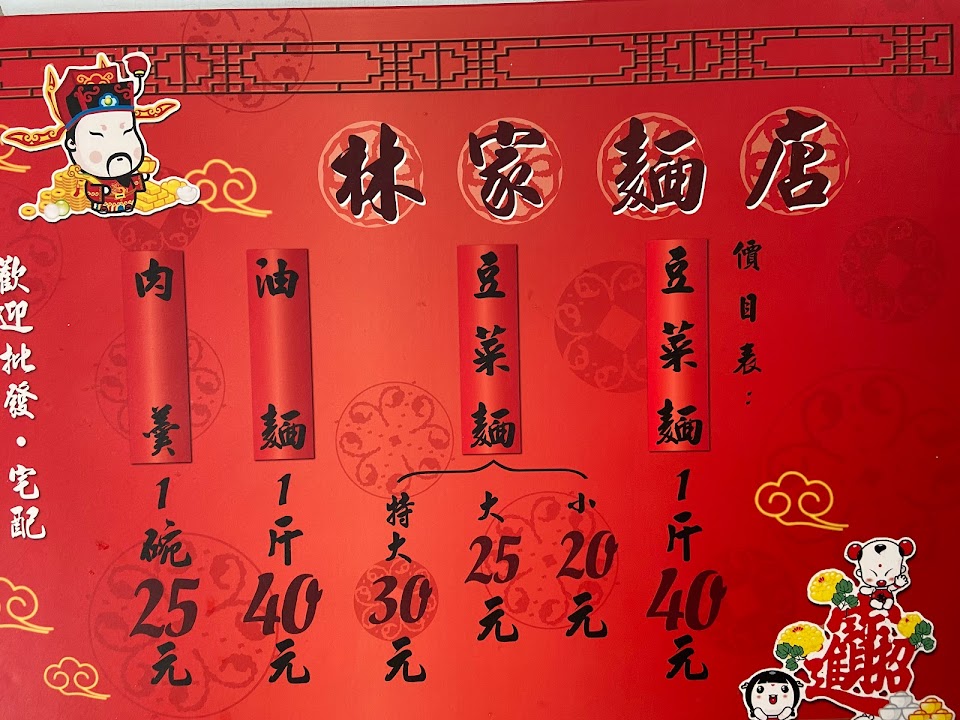 林家麵店
價目表：
豆菜麵 1斤40元
豆菜麵
小20元
大25元
特大30元
油麵 1斤40元
肉羹 1碗25元
歡迎批發・宅配
招財進寶